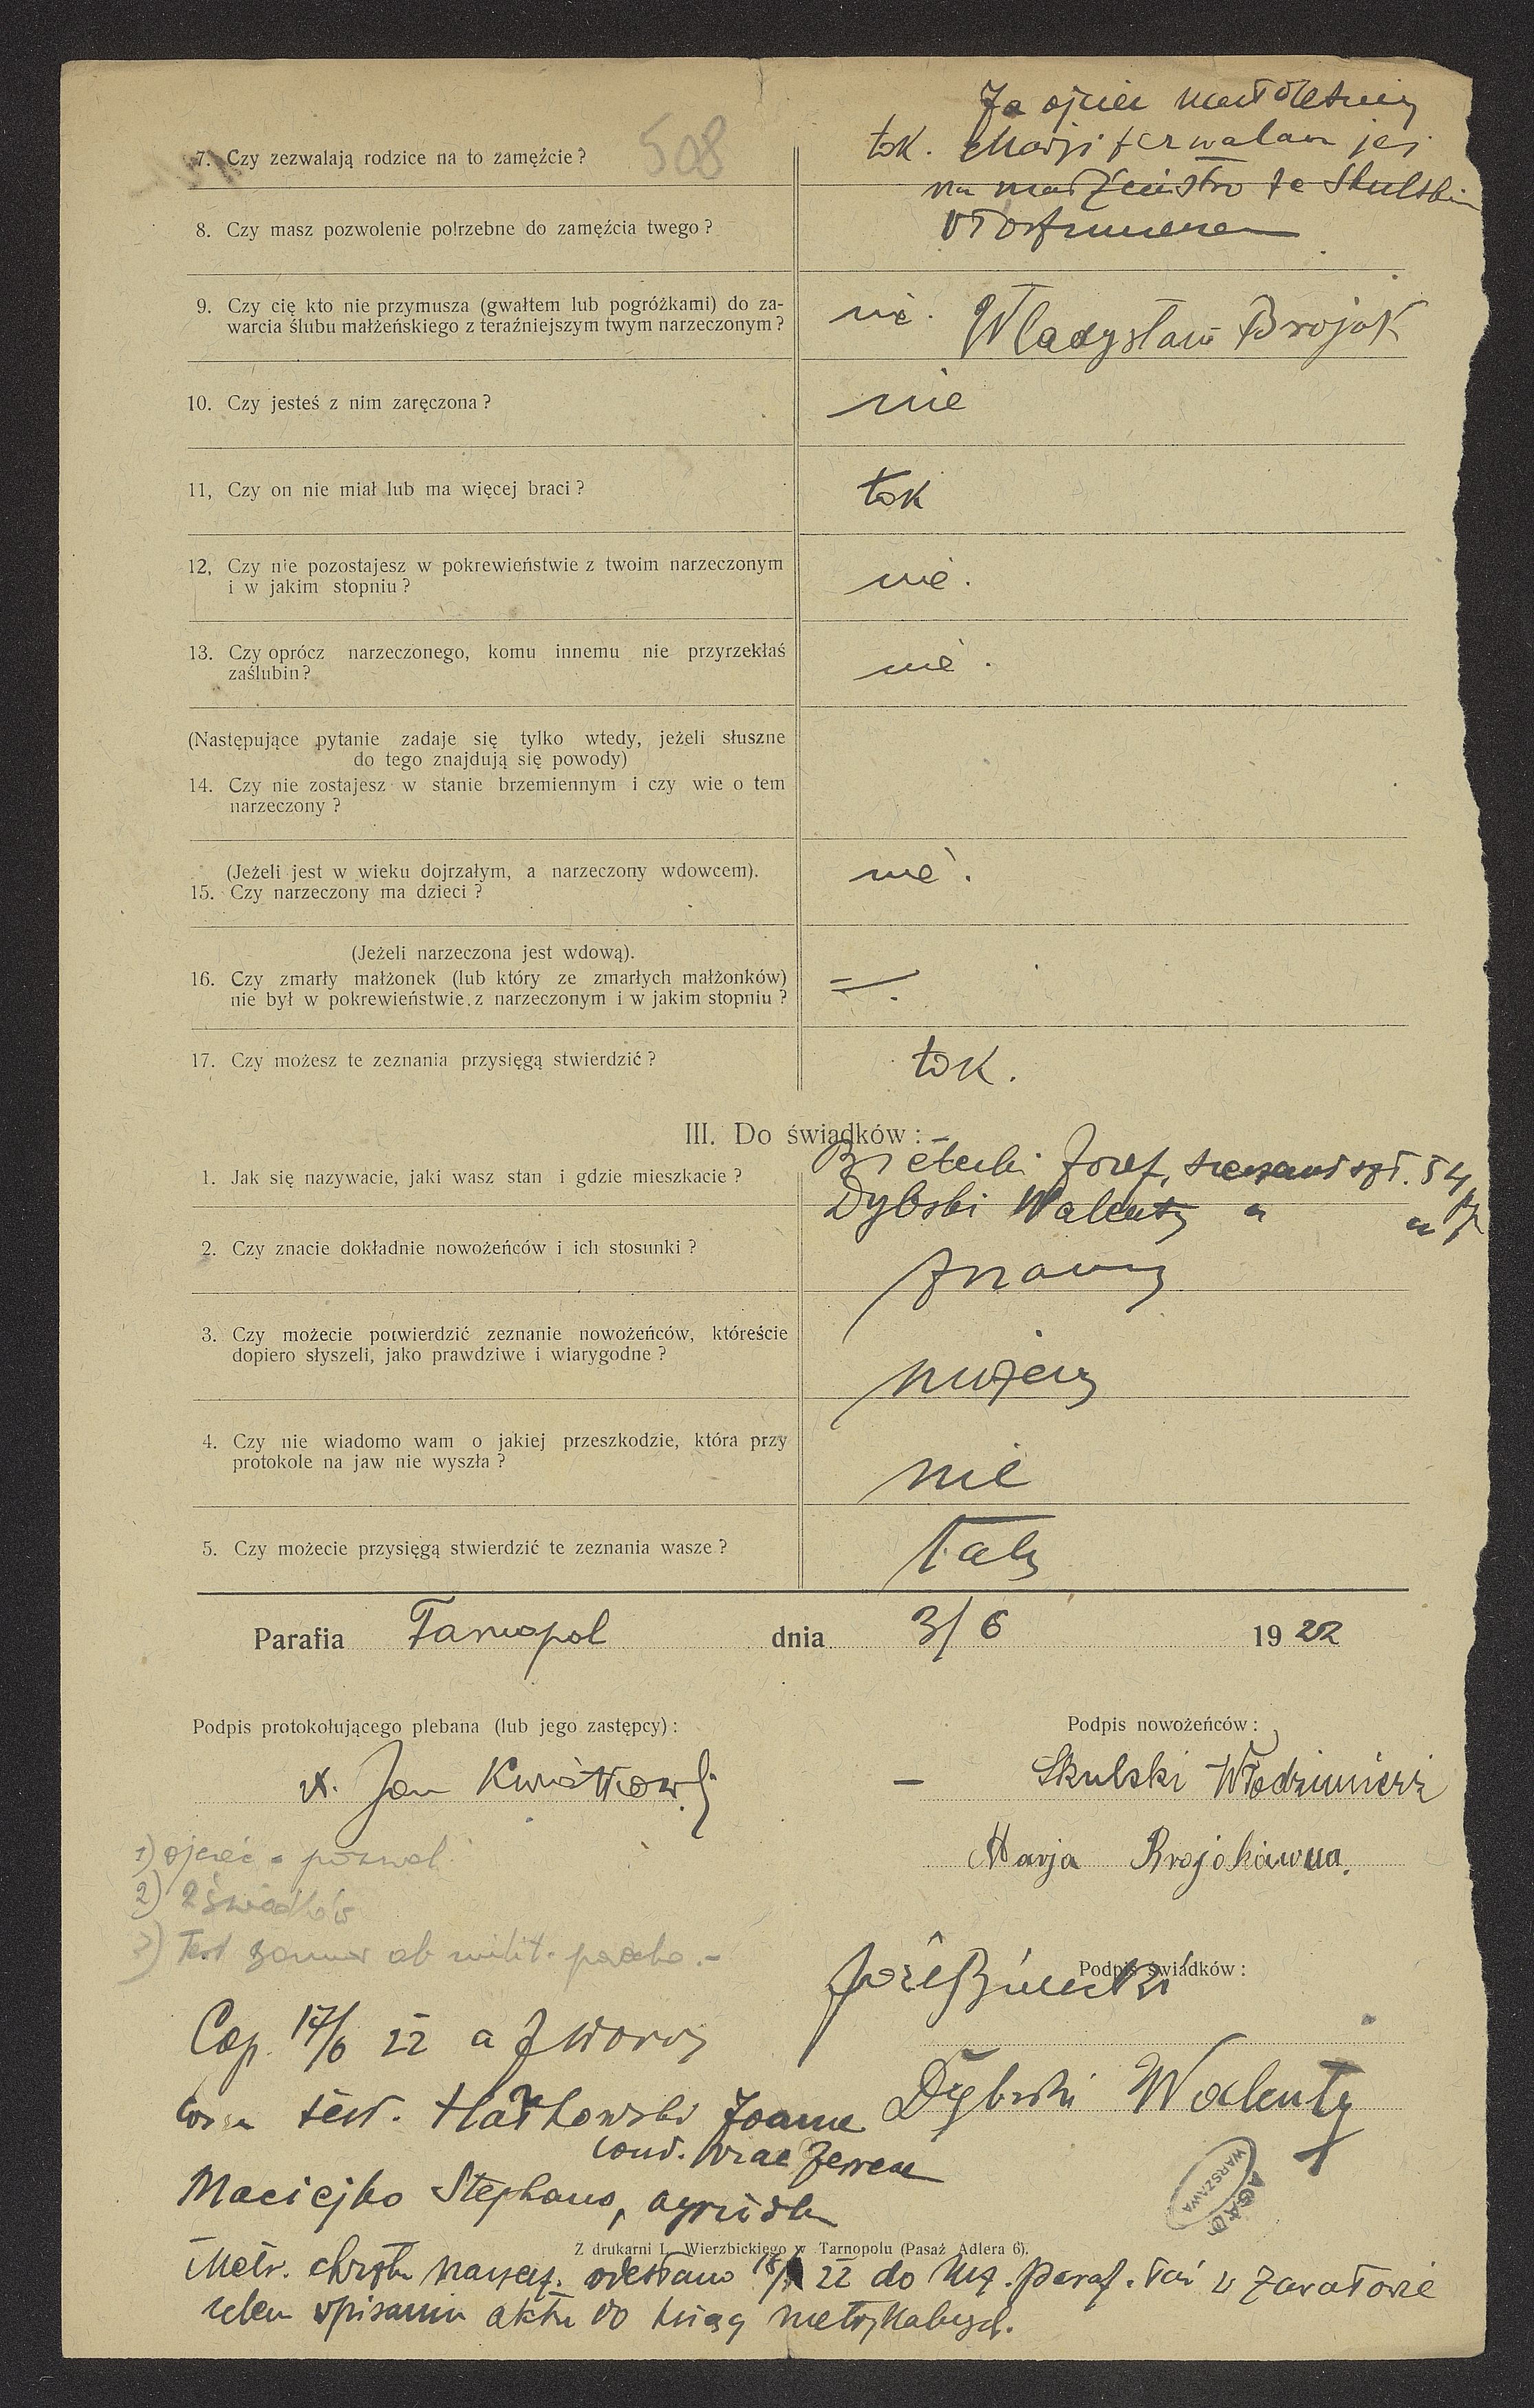 508
Ja ojciec małoletniej
7. Czy zezwalają rodzice na to zamęźcie? tak. Marji zezwalam jej
na małżeństwo ze Skulskim
8. Czy masz pozwolenie potrzebne do zamęźcia twego? Włodzimierzem
9. Czy cię kto nie przymusza (gwałtem lub pogróżkami) do za-
warcia ślubu małżeńskiego z teraźniejszym twym narzeczonym? nie. Władysław Brojak
10. Czy jesteś z nim zaręczona? nie
11, Czy on nie miał lub ma więcej braci? tak
12, Czy nie pozostajesz w pokrewieństwie z twoim narzeczonym
i w jakim stopniu? nie.
13. Czy oprócz narzeczonego, komu innemu nie przyrzekłaś
zaślubin? nie.
(Następujące pytanie zadaje się tylko wtedy, jeżeli słuszne
do tego znajdują się powody)
14. Czy nie zostajesz w stanie brzemiennym i czy wie o tem
narzeczony?
(Jeżeli jest w wieku dojrzałym, a narzeczony wdowcem).
15. Czy narzeczony ma dzieci? nie.
(Jeżeli narzeczona jest wdową).
16. Czy zmarły małżonek (lub który ze zmarłych małżonków)
nie był w pokrewieństwie z narzeczonym i w jakim stopniu?
17. Czy możesz te zeznania przysięgą stwierdzić? tak.
III. Do świadków:
1. Jak się nazywacie, jaki wasz stan i gdzie mieszkacie? Bielecki Józef, 54
Dybski Walenty "
2. Czy znacie dokładnie nowożeńców i ich stosunki? znamy
3. Czy możecie potwierdzić zeznanie nowożeńców, któreście
dopiero słyszeli, jako prawdziwe i wiarygodne? możemy
4. Czy nie wiadomo wam o jakiej przeszkodzie, która przy
protokole na jaw nie wyszła? nie
5. Czy możecie przysięgą stwierdzić te zeznania wasze? Tak
Parafia Tarnopol dnia 3/6 1922
Podpis protokołującego plebana (lub jego zastępcy): Podpis nowożeńców:
X. Jan Kwiatkowski Skulski Włodzimierz
Marja Brojakówna.
1) ojciec pozwol
2) 2 świadków
3) Test
Podpis świadków:
Józef Bielecki
Cop. 17/6 22 a
Dybski Walenty
test. Joanne
Maciejko Stephano,
AGAD
WARSZAWA
Z drukarni L. Wierzbickiego w Tarnopolu (Pasaż Adlera 6).
Metr. chrztu narzecz. odesłano 18/ 22 do Urz. paraf. łać w Zawałowie
celem wpisania aktu do ksiąg metrykalnych.